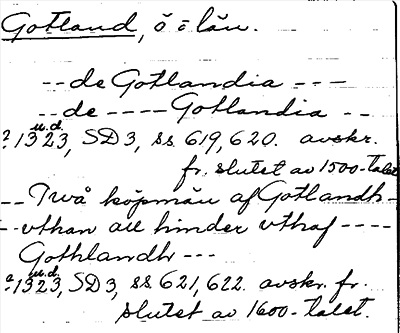 Gotland, ö o län.
-- de Gotlandia ---
-- de ---- Gotlandia --
?1323, u.d. SD 3, ss 619, 620. avskr.
fr. slutet av 1500-talet
-- Twå köpmän af Gotlandh -
-- vthan all hinder vthaf ----
Gothlandh ---
?1323, u.d. SD 3, ss 621, 622. avskr. fr.
slutet av 1600-talet.